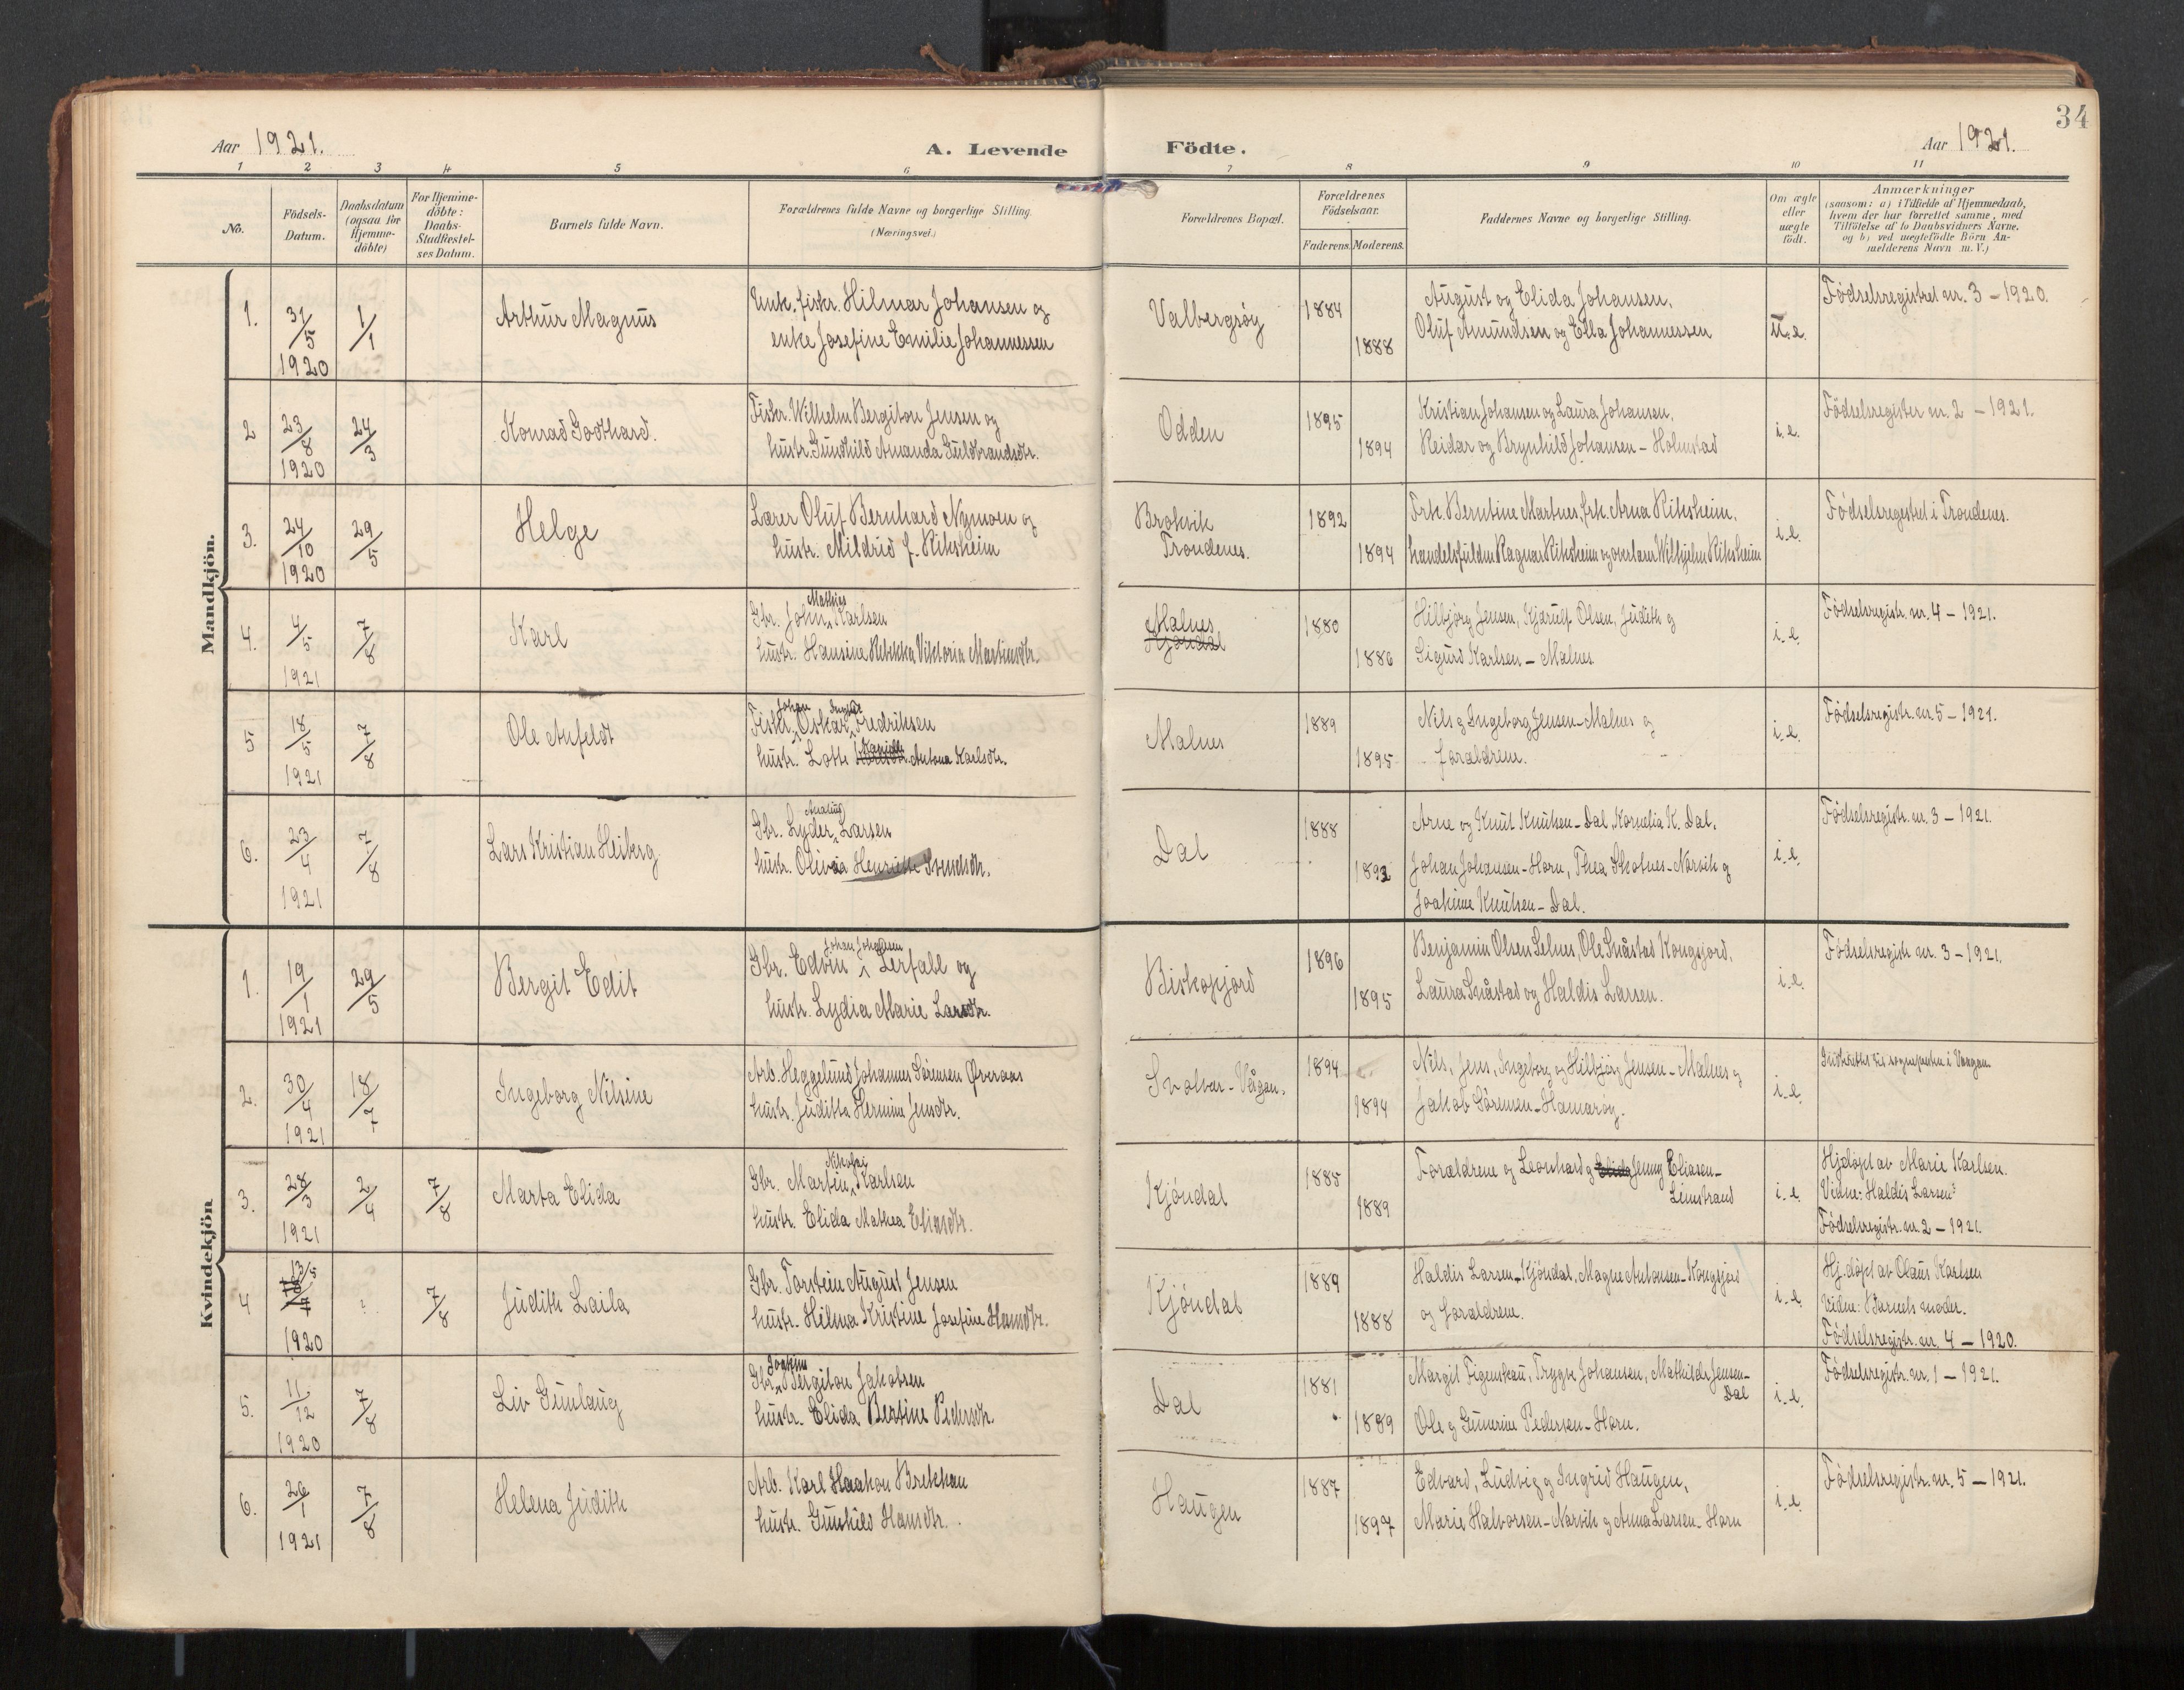 34
Aar 1921.
A. Levende Födte.
Aar 1921.
1 2 3 4 5 6 7 8 9 10 11
No.
Födsels-
Datum.
Daabsdatum
(ogsaa for
Hjemme-
döbte)
For Hjemme-
döbte:
Daabs-
Stadfæstel-
ses Datum.
Barnets fulde Navn.
Forældrenes fulde Navne og borgerlige Stilling.
(Næringsvei.)
Forældrenes Bopæl.
Forældrenes
Födselsaar.
Faderens. Moderens.
Faddernes Navne og borgerlige Stilling.
Om ægte
eller
uægte
født.
Anmærkninger
(saasom: a) i Tilfælde af Hjemmedaab,
hvem der har forrettet samme, med
Tilföielse af to Daabsvidners Navne,
og b) ved uægtefödte Börn An-
melderens Navn m. V.)
Mandkjön.
1. 31/5 1920 1/1 Arthur Magnus
Enk. fiskr. Hilmar Johansen og
enke Josefine Emilie Johannessen
Valbergsøy 1884 1888
August og Elida Johansen,
Oluf Amundsen og Ella Johannessen
u.e.
Födselsregistret nr. 3 – 1920.
2 23/8 1920 24/3 Konrad Godhard.
Fiskr. Wilhelm Bergiton Jensen og
hustr. Gundhild Amanda Guldbrandsdtr.
Odden 1895 1894
Kristian Johansen og Laura Johansen,
Reidar og Brynhild Johansen – Holmstad
i.e.
Födselsregister nr. 2 – 1921.
3. 24/10 1920 29/5 Helge
Lærer Oluf Bernhard Nymoen og
hustr. Mildrid f. Riksheim
Brokvik
Trondenes. 1892 1894
Frk. Berntine Martnes, frk. Arna Riksheim,
handelsfuldm Ragnar Riksheim og overlær Wilhjelm Riksheim
i.e.
Födselsregestret i Trondenes.
4. 4/5 1921 7/8 Karl
Mathias
Gbr. John Karlsen
hustr. Hansine Rebekka Viktoria Martinsdtr.
Malnes
Kjöndal 1880 1886
Hilbjörg Jensen, Kjarulf Olsen, Judith og
Sigurd Karlsen – Malnes.
i.e.
Födselsregistr. nr. 4 – 1921.
5 18/5 1921 7/8 Ole Anfeldt
Johan
Fiskr. Oskar Fredriksen
hustr. Lotte Antona Karlsdtr.
Malnes 1889 1895
Nils og Ingeborg Jensen – Malnes og
forældrene.
i.e.
Födselsregistr. nr. 5 – 1921.
6. 23/4 1921 7/8 Lars Kristian Heiberg
Gbr. Lyder Larsen
hustr. Olivia Henriette Svendsdtr.
Dal 1888 1892
Arne og Knut Knutsen – Dal, Kornelia K. Dal,
Johan Johansen – Horn, Thea Skotnes – Narvik og
Joakime Knutsen – Dal.
i.e.
Födselsregistr. nr. 3 – 1921.
Kvindekjön
1. 19/1 1921 29/5 Bergit Edit
Johan Johansen
Gbr. Edvin Lerfall og
hustr. Lydia Marie Larsdtr.
Biskopjord 1896 1895
Benjamin Olsen Selnes, Ole Snåstad Kongsjord,
Laura Snåstad og Haldis Larsen.
i.e.
Födselsregistr nr. 3 – 1921.
2. 30/4 1921 18/7 Ingeborg Nilsine
Arb. Heggelund Johannes Sörensen Øveraas
hustr. Juditta Hermine Jensdtr.
Svolvær – Vågan. 1894 1894
Nils, Jens, Ingeborg og Hilbjörg Jensen – Malnes og
Jakob Sörensen – Hamaröy.
i.e.
Indberettet til sognepresten i Vaagan.
3. 28/3 1921 2/4 7/8 Marta Elida
Nikolai
Gbr. Martin Karlsen
hustr. Elida Mathea Eliasdtr.
Kjöndal 1885 1889
Forældrene og Leonhard og Elida Jenny Eliasen –
Leinstrand
i.e.
Hjdöpt av Marie Karlsen.
Vidne: Haldis Larsen
Födselsregistr. nr. 2 – 1921.
4 13/5 1920 ? 7/8 Judith Laila
Gbr. Torstein August Jensen
hustr. Hilma Kristine Josefine Hansdtr.
Kjöndal 1889 1888
Haldis Larsen – Kjöndal, Magne Antonsen – Kongsjord
og forældrene.
i.e.
Hj.döpt av Olaus Karlsen
Vidne: Barnets moder.
Födselsregistr. nr. 4 – 1920.
5. 11/12 1920 7/8 Liv Gunlaug
Joakim
Gbr. Bergiton Jakobsen
hustr. Elida Bertine Pedersdtr.
Dal 1881 1889
Margit Figenskau, Trygve Johansen, Mathilde Jensen –
Dal
Ole og Gunerine Pedersen – Horn.
i.e.
Födselsregistr. nr. 1 – 1921.
6. 26/1 1921 7/8 Helena Judith
Arb. Karl Haakon Brekkan
hustr. Gunhild Hansdtr.
Haugen 1887 1897
Edvard, Ludvig og Ingrid Haugen,
Marie Halvorsen – Narvik og Anna Larsen – Horn
i.e.
Födselsregistr. nr. 5 – 1921.